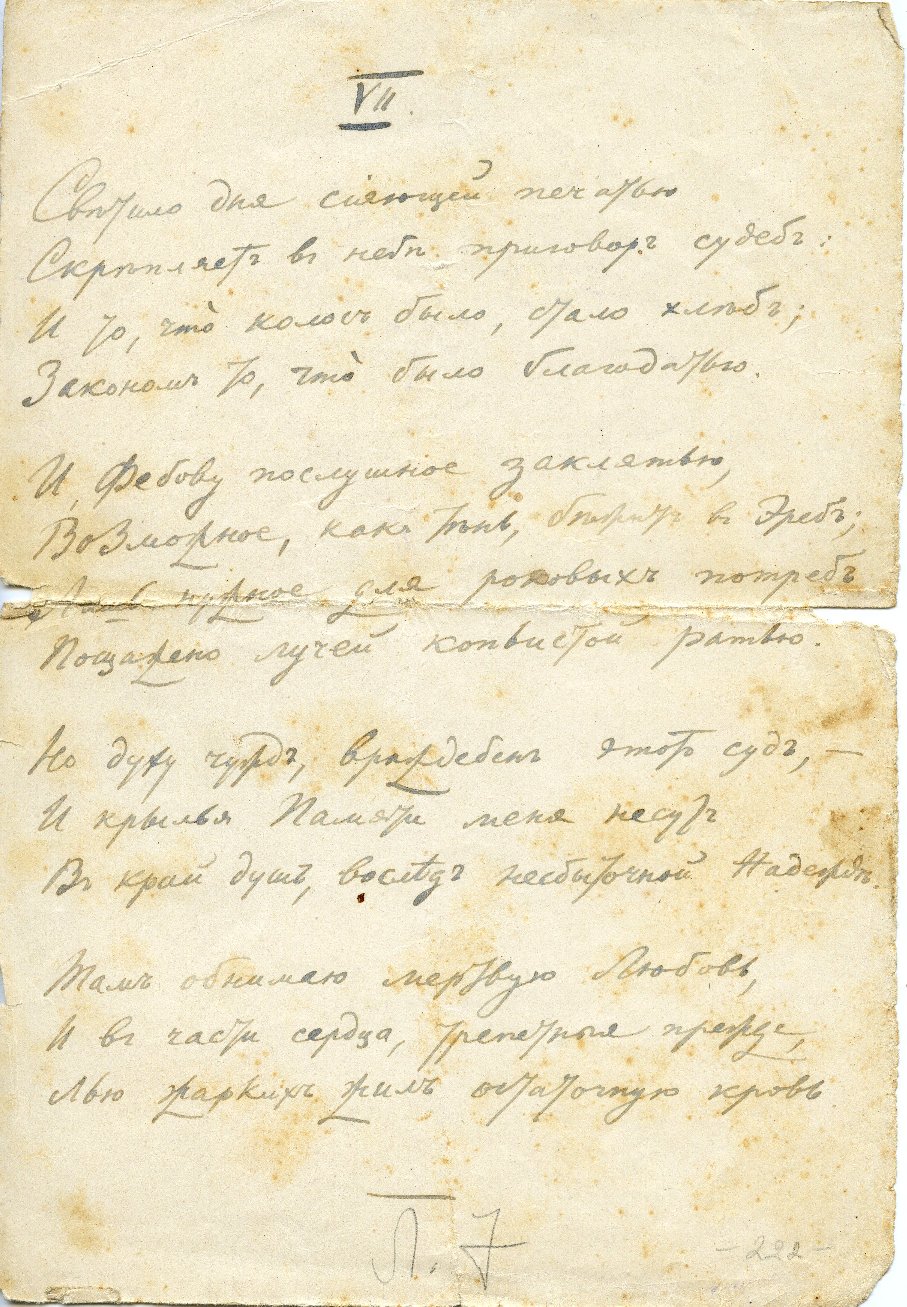 VII.
Свѣтило дня сіяющей печатью
Скрѣпляетъ въ небѣ приговоръ судебъ:
И то, что̀ колосъ было, стало хлѣбъ;
Закономъ то, что̀ было благодатью.
И, Фебову послушное заклятью,
Возможное, какъ тѣнь, бѣжитъ въ Эребъ;
нужное для роковыхъ потребъ
Пощажено лучей копьистой ратью.
Но духу чуждъ, враждебенъ этотъ судъ, —
И крылья Памяти меня несутъ
Въ край душъ, вослѣдъ несбыточной Надеждѣ.
Тамъ обнимаю мертвую Любовь,
И въ части сердца, трепетныя прежде,
Лью жаркихъ жилъ остаточную кровь
Л. 7
– 222 –